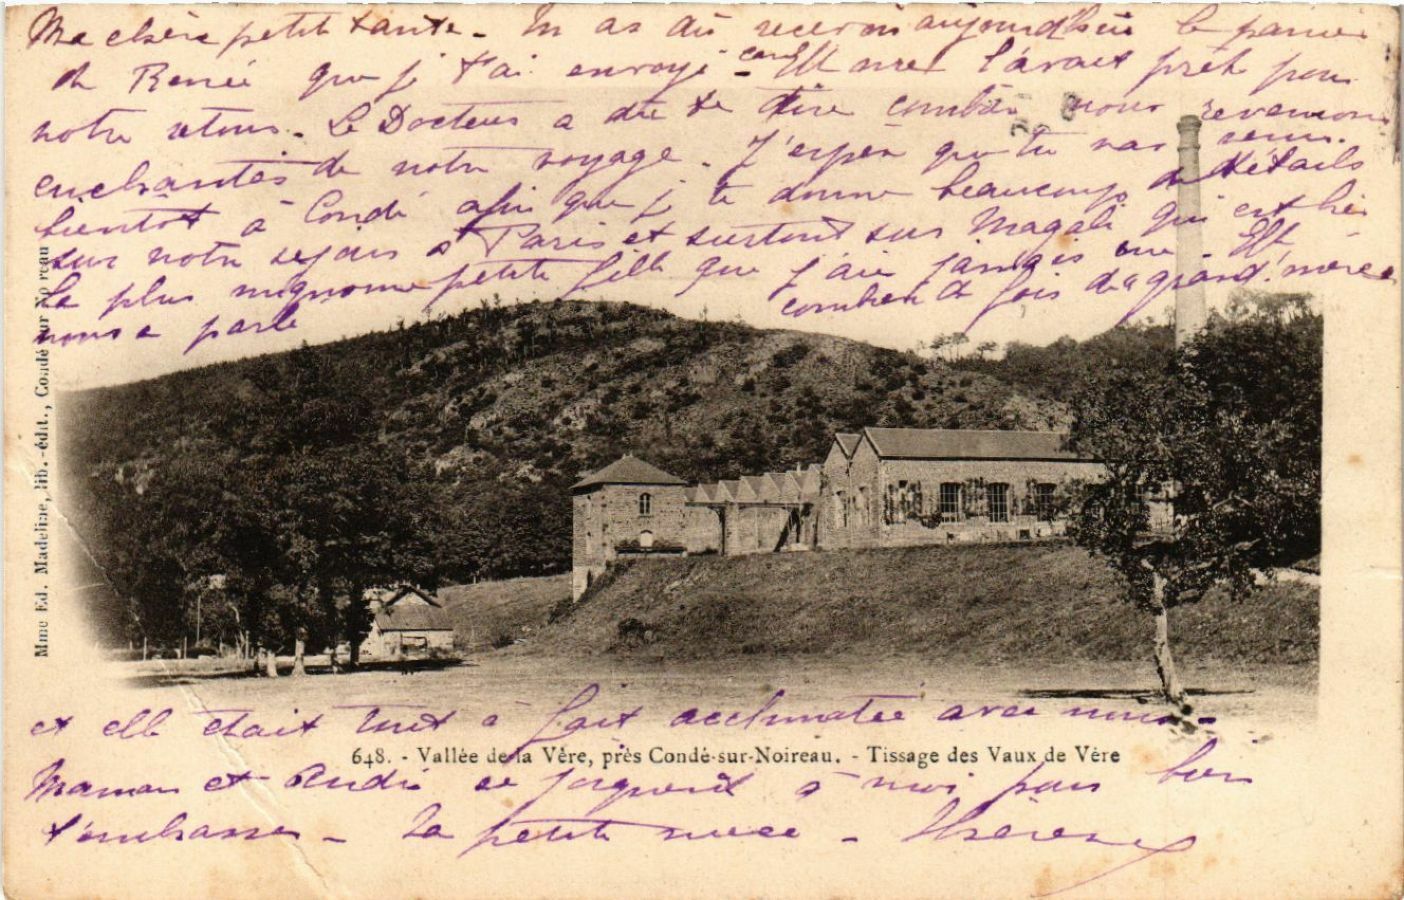 Ma chère petite tante. Tu as dû recevoir aujourd'hui le panier
de Renée que je t'ai envoyé - car l'avait prêté pour
notre retour. Le Docteur a dû te dire combien nous revenions
enchantés de notre voyage. J'espère que tu vas venir
bientôt à Condé afin que je te donne beaucoup de détails
sur notre séjour à Paris et surtout sur Magali qui est bien
la plus mignonne petite fille que j'aie jamais vue. Et
combien de fois de grand'mère
nous a parlé
et elle était tout à fait acclimatée avec nous.
648. - Vallée de la Vère, près Condé-sur-Noireau. - Tissage des Vaux de Vère
Maman et André se joignent à moi pour bien
t'embrasser. Ta petite nièce - Thérèse
Mme Ed. Madeline, lib.-édit., Condé sur Noireau